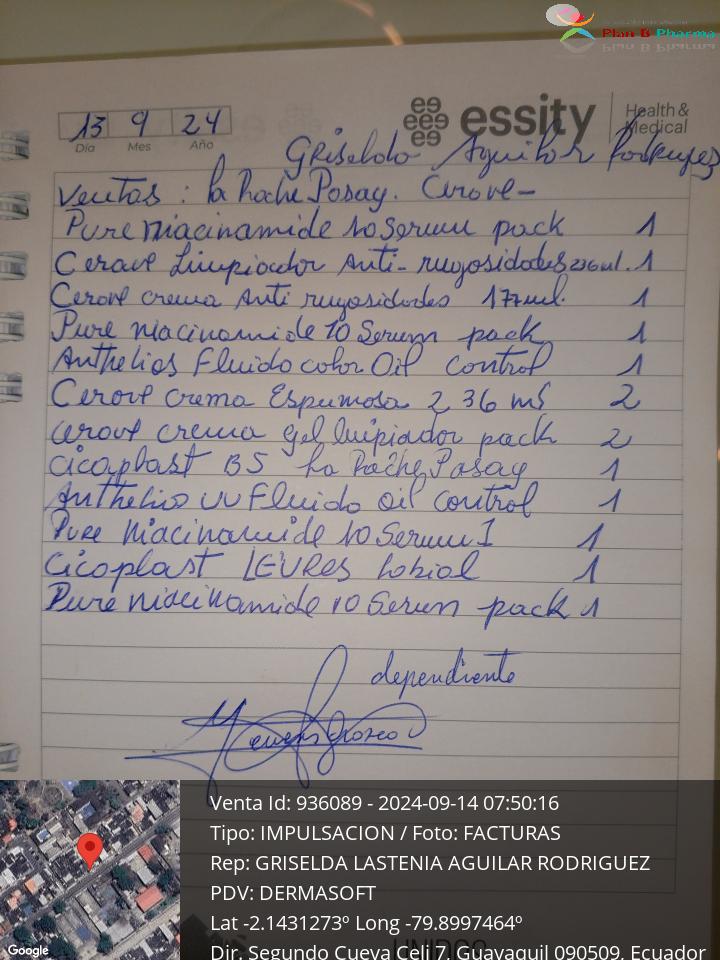 Plan B Pharma
13 9 24
Día Mes Año
essity Health & Medical
Griselda Aguilar Rodriguez
Ventas : La Roche Posay. Cerave -
Pure niacinamide 10 Serum pack 1
Cerave Limpiador Anti-rugosidades 236 ml. 1
Cerave crema Anti rugosidades 177 ml. 1
Pure niacinamide 10 Serum pack 1
Anthelios Fluido color Oil control 1
Cerave crema Espumosa 236 ml 2
cerave crema gel limpiador pack 2
Cicaplast B5 La Roche Posay 1
Anthelios uv Fluido oil control 1
Pure Niacinamide 10 Serum I 1
Cicaplast LEVRES Labial 1
Pure niacinamide 10 Serum pack 1
dependiente
Venta Id: 936089 - 2024-09-14 07:50:16
Tipo: IMPULSACION / Foto: FACTURAS
Rep: GRISELDA LASTENIA AGUILAR RODRIGUEZ
PDV: DERMASOFT
Lat -2.1431273º Long -79.8997464º
Dir. Segundo Cueva Celi 7, Guayaquil 090509, Ecuador
Google